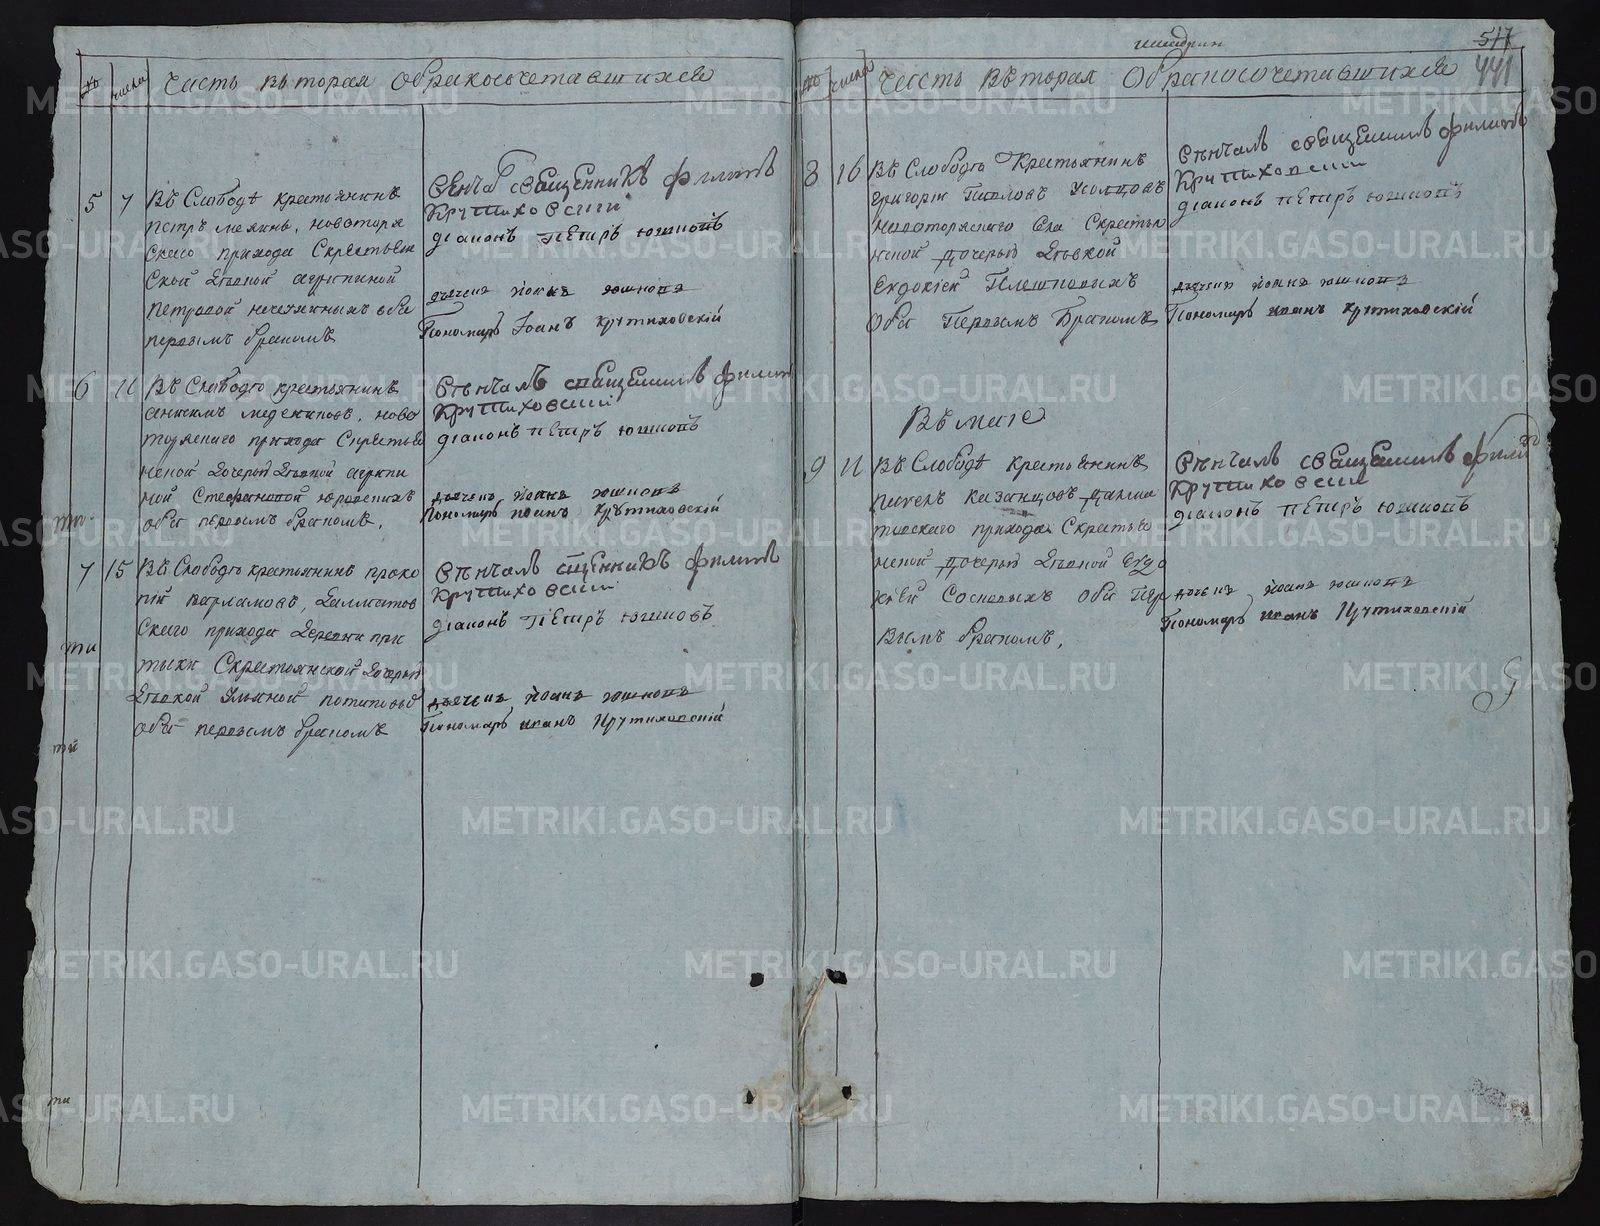 № числа Часть вторая обракосочетавшихся
5 7 Въ Слободѣ крестьянинъ
Петръ
скаго прихода скрестьян
ской девкой агрипиной
Петровой обе
первымъ бракомъ
венчал священникъ филипъ
Крутиховский
диаконъ петръ юшковъ
дьячекъ иоанъ юшковъ
Пономарь Иоанъ крутиховскій
6 11 Въ Слободе крестьянинъ
ново
торжскаго прихода скрестья
нской дочерью девкой агрипи
ной Стефановой
обеи первымъ бракомъ.
венчалъ священникъ филипъ
Крутиховский
диаконъ петръ юшковъ
дьячекъ иоанъ юшковъ
Пономарь иоанъ крутиховскій
ти
7 15 Въ Слободе крестьянинъ проко
пій варламовъ, далматов
скаго прихода деревни при
тыки скрестьянской дочерью
девкой Ульяной
обеи первымъ бракомъ
венчалъ сщенникъ филипъ
Крутиховский
диаконъ петръ юшковъ
дьячекъ иоанъ юшковъ
Пономарь иоанъ Крутиховскій
ти
517
441
№ числа Часть вторая Обракосочетавшихся
8 16 Въ Слободе Крестьянинъ
григорій Усолцовъ
скрестья
нской дочерью девкой
Евдокией Плешковыхъ
Обеи Первымъ Бракомъ
венчалъ священникъ филипъ
Крутиховский
диаконъ петръ юшковъ
дьячекъ иоанъ юшковъ
Пономарь иоанъ крутиховскій
Въ мае
9 11 Въ Слободѣ крестьянинъ
казанцовъ далма
товскаго прихода скрестья
нской дочерью девкой Евдо
кией Сосновыхъ обеи пер
вымъ бракомъ.
венчалъ священникъ филипъ
Крутиховский
диаконъ петръ юшковъ
дьячекъ иоанъ юшковъ
Пономарь иоанъ Крутиховскій
METRIKI.GASO-URAL.RU